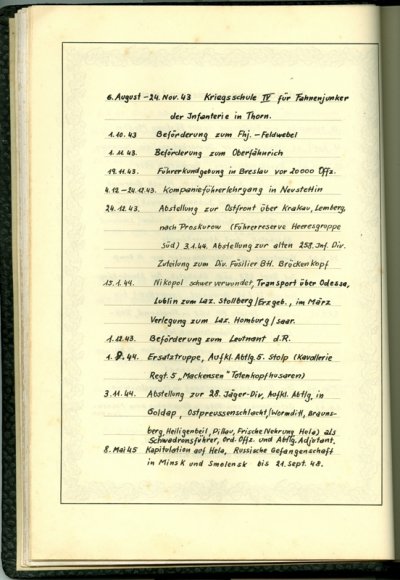 6. August – 24. Nov. 43 Kriegsschule IV für Fahnenjunker
der Infanterie in Thorn.
1. 10. 43 Beförderung zum Fhj. – Feldwebel
1. 11. 43. Beförderung zum Oberfähnrich
19. 11. 43. Führerkundgebung in Breslau vor 20000 Offz.
4. 12. – 24. 12. 43. Kompanieführerlehrgang in Neustettin
24. 12. 43. Abstellung zur Ostfront über Krakau, Lemberg,
nach Proskurow (Führerreserve Heeresgruppe
Süd) 3. 1. 44. Abstellung zur alten 258. Inf. Div.
Zuteilung zum Div. Füsilier Btl. Brückenkopf
15. 1. 44. Nikopol schwer verwundet, Transport über Odessa,
Lublin zum Laz. Stollberg/Erzgeb., im März
Verlegung zum Laz. Homburg/Saar.
1. 12. 43. Beförderung zum Leutnant d. R.
44. Ersatztruppe, Aufkl. Abtlg. 5. Stolp (Kavallerie
Regt. 5 „Mackensen" Totenkopfhusaren)
3. 11. 44. Abstellung zur 28. Jäger-Div., Aufkl. Abtlg. in
Goldap, Ostpreussenschlacht/Wormditt, Brauns-
berg, Heiligenbeil, Pillau, Frische Nehrung, Hela) als
Schwadronsführer, Ord. Offz. und Abtlg. Adjutant.
8. Mai 45 Kapitulation auf Hela, Russische Gefangenschaft
in Minsk und Smolensk bis 21. Sept. 48.